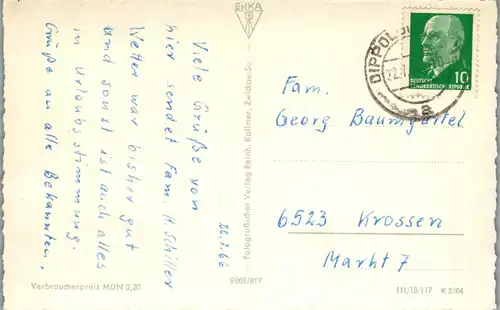 ENKA
Viele Grüße von
hier sendet Fam. H. Schiller
Wetter war bisher gut
und sonst ist auch alles
in Urlaubsstimmung.
Grüße an alle Bekannten.
22.7.66
Verbraucherpreis MDN 0,20
9368/817
Fotografischer Verlag Reinh. Kallmer, Zwickau Sa.
DIPPOLDI
22.7
a
DEUTSCHE
DEMOKRATISCHE REPUBLIK
10
Fam.
Georg Baumgärtel
6523 Krossen
Markt 7
III/18/117 K 2/64